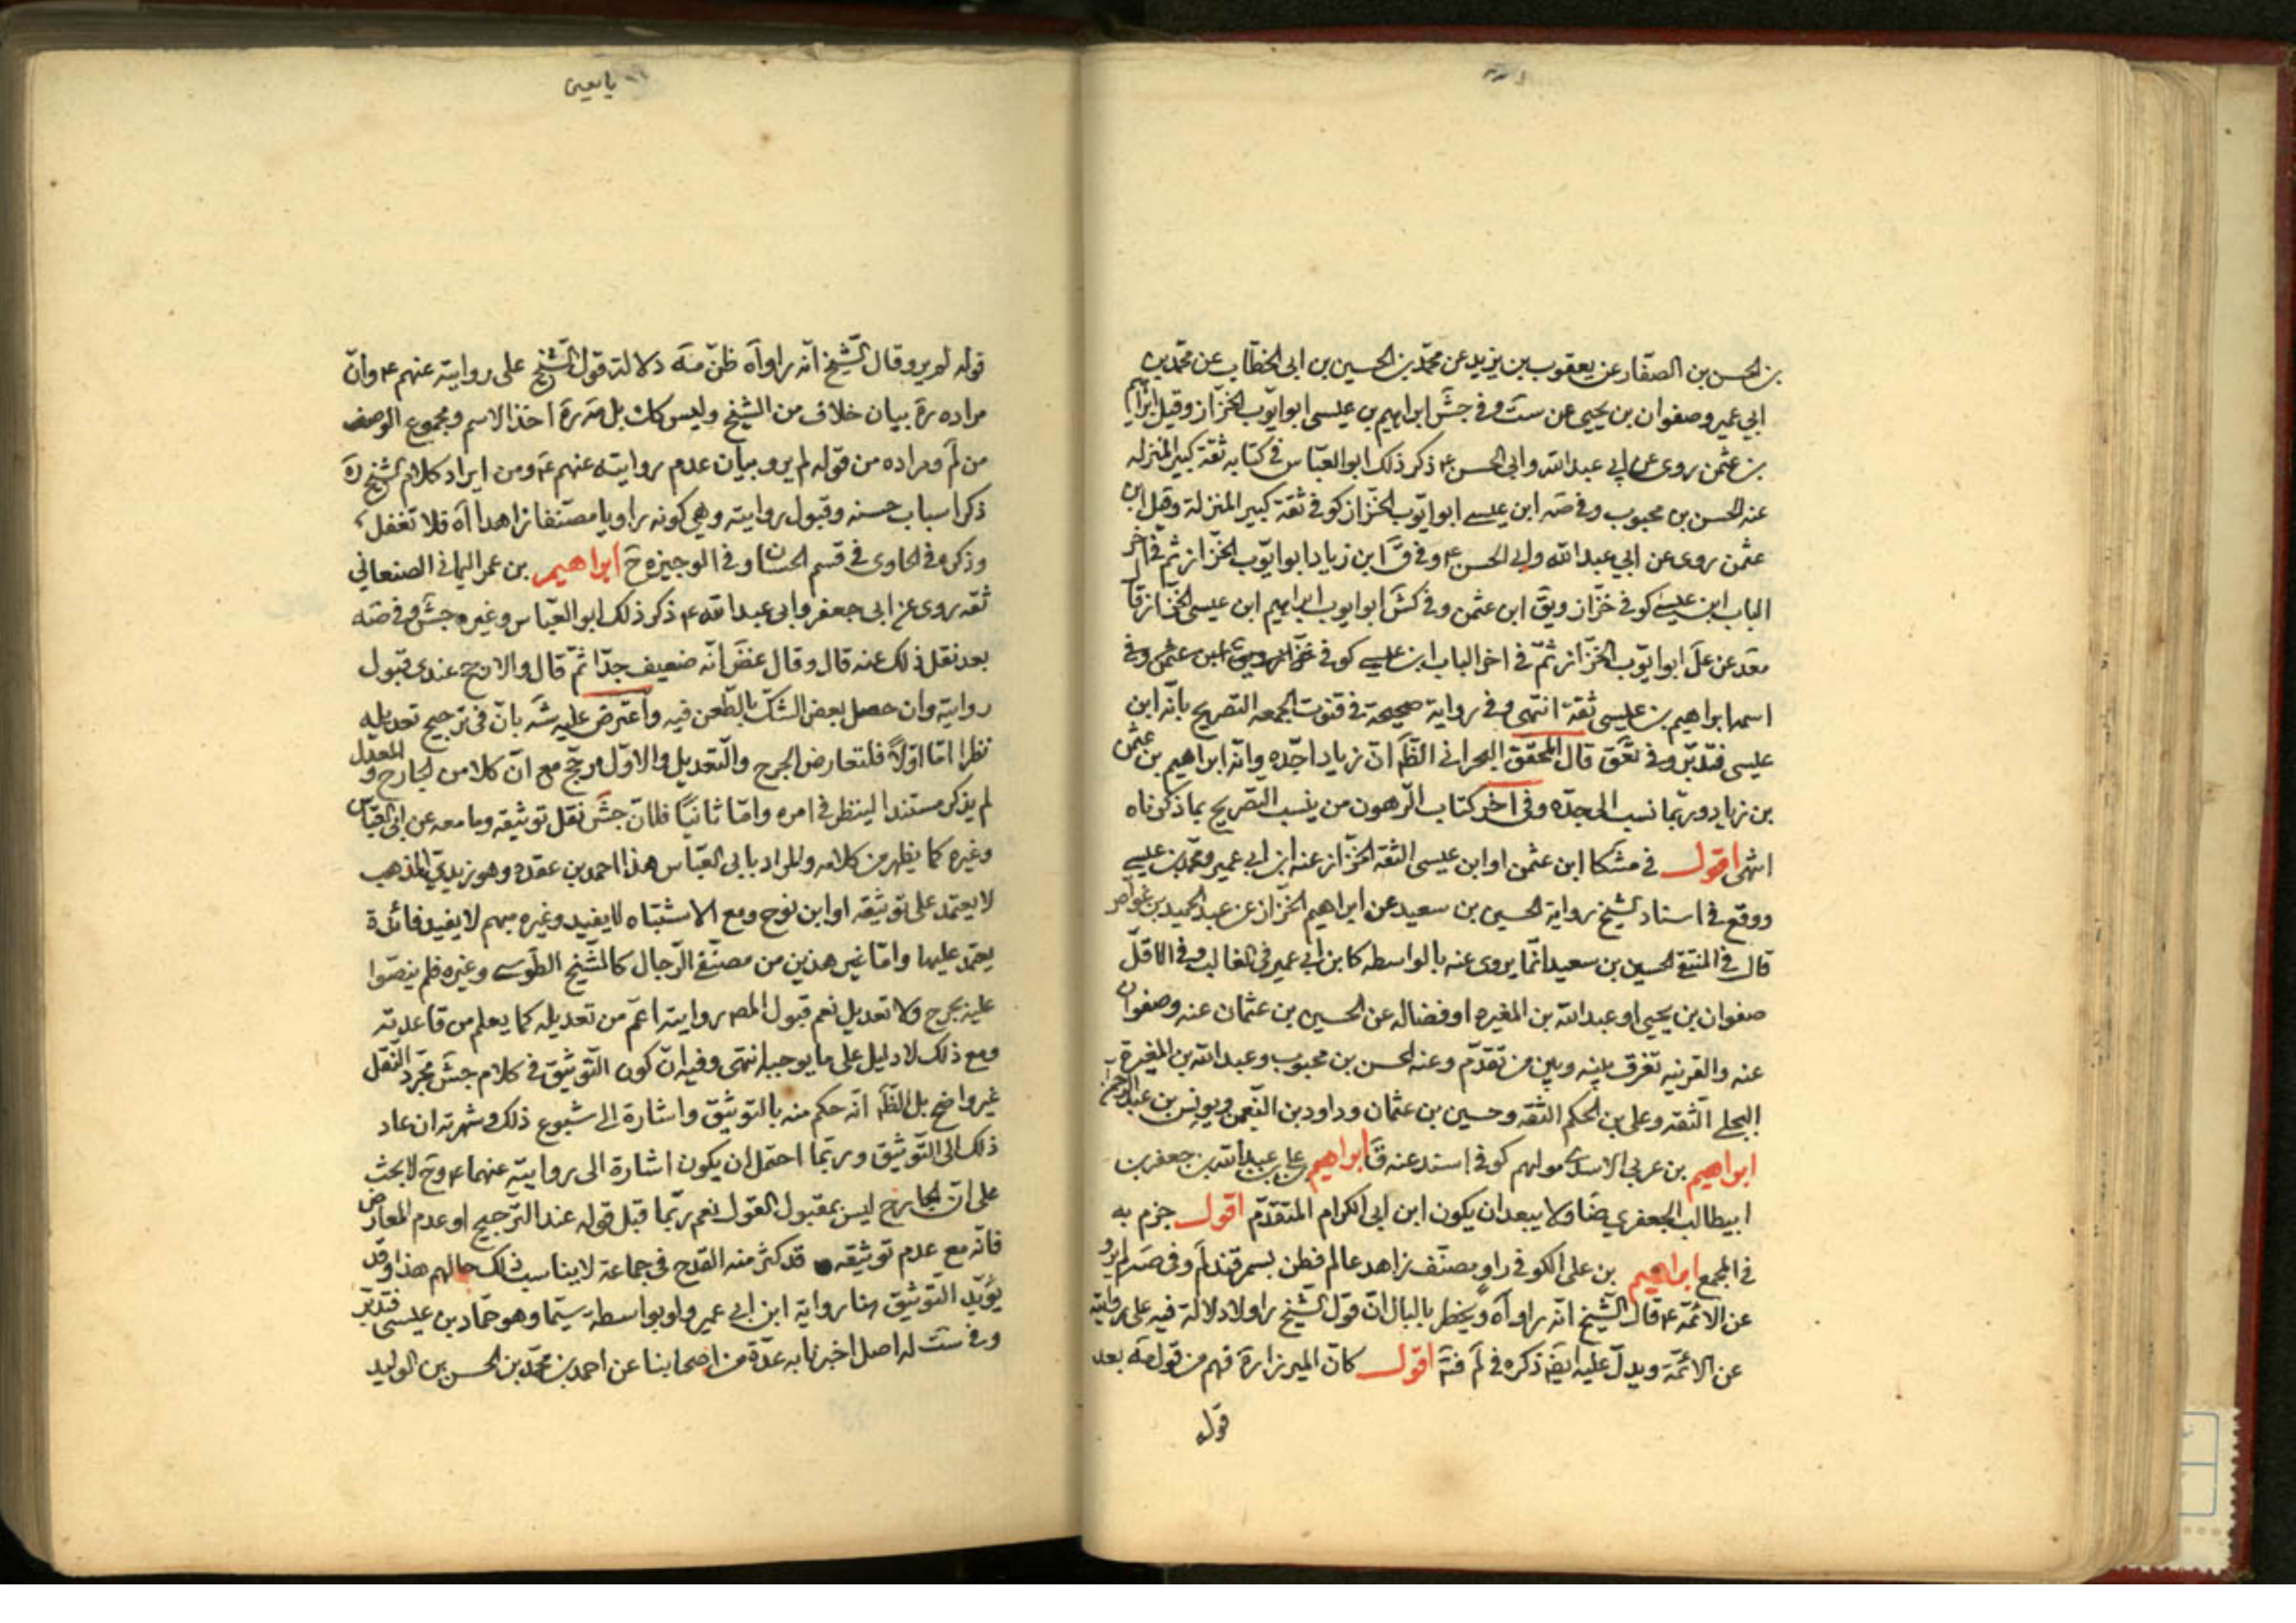 بن الحسن بن الصفّار عن يعقوب بن يزيد عن محمّد بن الحسين بن ابى الخطّاب عن محمّد بن
ابي عمير وصفوان بن يحيى عن ستَ وفى جشَ ابراهيم بن عيسى ابو ايّوب الخزّاز وقيل ابراهيم
بن عثمن روى عن ابي عبد الله وابى الحسن ع ذكر ذلك ابو العبّاس فى كتابه ثقة كبير المنزله
عنه الحسن بن محبوب وفى صَه ابن عيسى ابو ايّوب الخزّاز كوفى ثقة كبير المنزلة وقيل ابن
عثمن روى عن ابي عبد الله وابى الحسن ع وفى قَ ابن زياد ابو ايّوب الخزّاز ثم فى آخر
الباب ابن عيسى كوفى خزّاز ويقَ ابن عثمن وفى كشَ ابو ايوب ابراهيم ابن عيسى الخزّاز قا
معَد عن علَ ابو ايّوب الخزّاز ثمّ فى اخر الباب ابن عيسى كوفى خزّاز ويقَ ابن عثمن وفى
اسمها ابراهيم بن عيسى ثقة انتهى وفى رواية صحيحة فى قنوت الجمعه التصريح بانّه ابن
عيسى فتدبّر وفى تعَق قال المحقق البحرانى الظَ انّ زياد اجدّه وانّه ابراهيم بن عثمن
بن زياد وربّما نسب الى جدّه وفى اخر كتاب الرّهون من ينسب التصريح بما ذكرناه
انتهى اقول فى مشكا ابن عثمن او ابن عيسى الثقه الخزّاز عنه ابن ابي عمير ومحمّد بن عيسى
ووقع فى اسناد الشيخ رواية الحسين بن سعيد عن ابراهيم الخزّاز عن عبد الحميد بن غواص
قال فى المنتقى الحسين بن سعيد انّما يروى عنه بالواسطه كابن ابي عمير فى الغالب وفى الاقلّ
صفوان بن يحيى او عبد الله بن المغيره او فضاله عن الحسين بن عثمان عنه وصفوان
عنه والقرينه تفرق بينه وبين من تقدّم وعنه الحسن بن محبوب وعبد الله بن المغيرة
البجلى الثقه وعلى بن الحكم الثقه وحسين بن عثمان وداود بن النّعمن ويونس بن عبد الرحمن
ابراهيم بن عربى الاسدى مولهم كوفى اسند عنه قَ ابراهيم بن على بن عبد الله بن جعفر بن
ابيطالب الجعفري ضَا ولا يبعد ان يكون ابن ابى الكرام المتقدّم اقول جزم به
فى المجمع ابراهيم بن على الكوفى راو مصنّف زاهد عالم قطن بسمرقند لَم وفى صَه لم يرو
عن الائمّة ع قال الشّيخ انّه راو آه ويخطر بالبال انّ قول الشّيخ راو لا دلالة فيه على روايته
عن الائمّة ويدلّ عليه ايضَ ذكره فى لَم فتَ اقول كان الميرزا رَة فهم من قول مَه بعد
قول
يا معين
قوله لم يرو وقال الشّيخ انّه راو آه ظنّ منَه دلالة قول الشّيخ على روايته عنهم ع وانّ
مراده رَة بيان خلاف من الشيخ وليس كك بل مَه رَة اخذ الاسم ومجموع الوصف
من لَم ومراده من قوله لم يرو بيان عدم روايته عنهم ع ومن ايراد كلام الشيخ رَه
ذكر اسباب حسنه وقبول روايته وهى كونه راويا مصنّفا زاهدا آه فلا تغفل
وذكره فى الحاوى فى قسم الحسان وفى الوجيزه حَ ابراهيم بن عمر اليمانى الصنعاني
ثقه روى عن ابى جعفر وابى عبد الله ع ذكر ذلك ابو العبّاس وغيره جشَ وفى صَه
بعد نقل ذلك عنه قال وقال غضَ انّه ضعيف جدّا ثمّ قال والارجح عندى قبول
روايته وان حصل بعض الشكّ بالطّعن فيه واعترض عليه شَه بانّ فى ترجيح تعديله
نظرا امّا اوّلاً فلتعارض الجرح والتّعديل والاوّل مرجّح مع انّ كلا من الجارح والمعدل
لم يذكر مستندا لينظر فى امره وامّا ثانيًا فلانّ جشَ نقل توثيقه وما معه عن ابى العبّاس
وغيره كما يظهر من كلامه والمراد بابى العبّاس هذا احمد بن عقده وهو زيديّ المذهب
لا يعتمد على توثيقه او ابن نوح ومع الاشتباه لا يفيد وغيره مبهم لا يفيد فائدة
يعتمد عليها وامّا غير هذين من مصنّفى الرّجال كالشّيخ الطّوسى وغيره فلم ينصّوا
عليه بجرح ولا تعديل نعم قبول المصَ روايته اعمّ من تعديله كما يعلم من قاعدته
ومع ذلك لا دليل على ما يوجبه انتهى وفيه انّ كون التّوثيق فى كلام جشَ مجرّد النّقل
غير واضح بل الظَ انّه حكم منه بالتوثيق واشارة الى شيوع ذلك وشهرته ان عاد
ذلك الى التّوثيق وربّما احتمل ان يكون اشارة الى روايته عنهما ع وحَ لا بحث
على انّ الجارح ليس بمقبول القول نعم ربّما قبل قوله عند التّرجيح او عدم المعارض
فانّه مع عدم توثيقه قد كثر منه القدح فى جماعة لا يناسب ذلك حالهم هذا وقد
يؤيّد التّوثيق هنا رواية ابن ابي عمير ولو بواسطة سيّما وهو حمّاد بن عيسى فتدبّر
وفى ستَ له اصل اخبرنا به عدّة من اصحابنا عن احمد بن محمّد بن الحسن بن الوليد